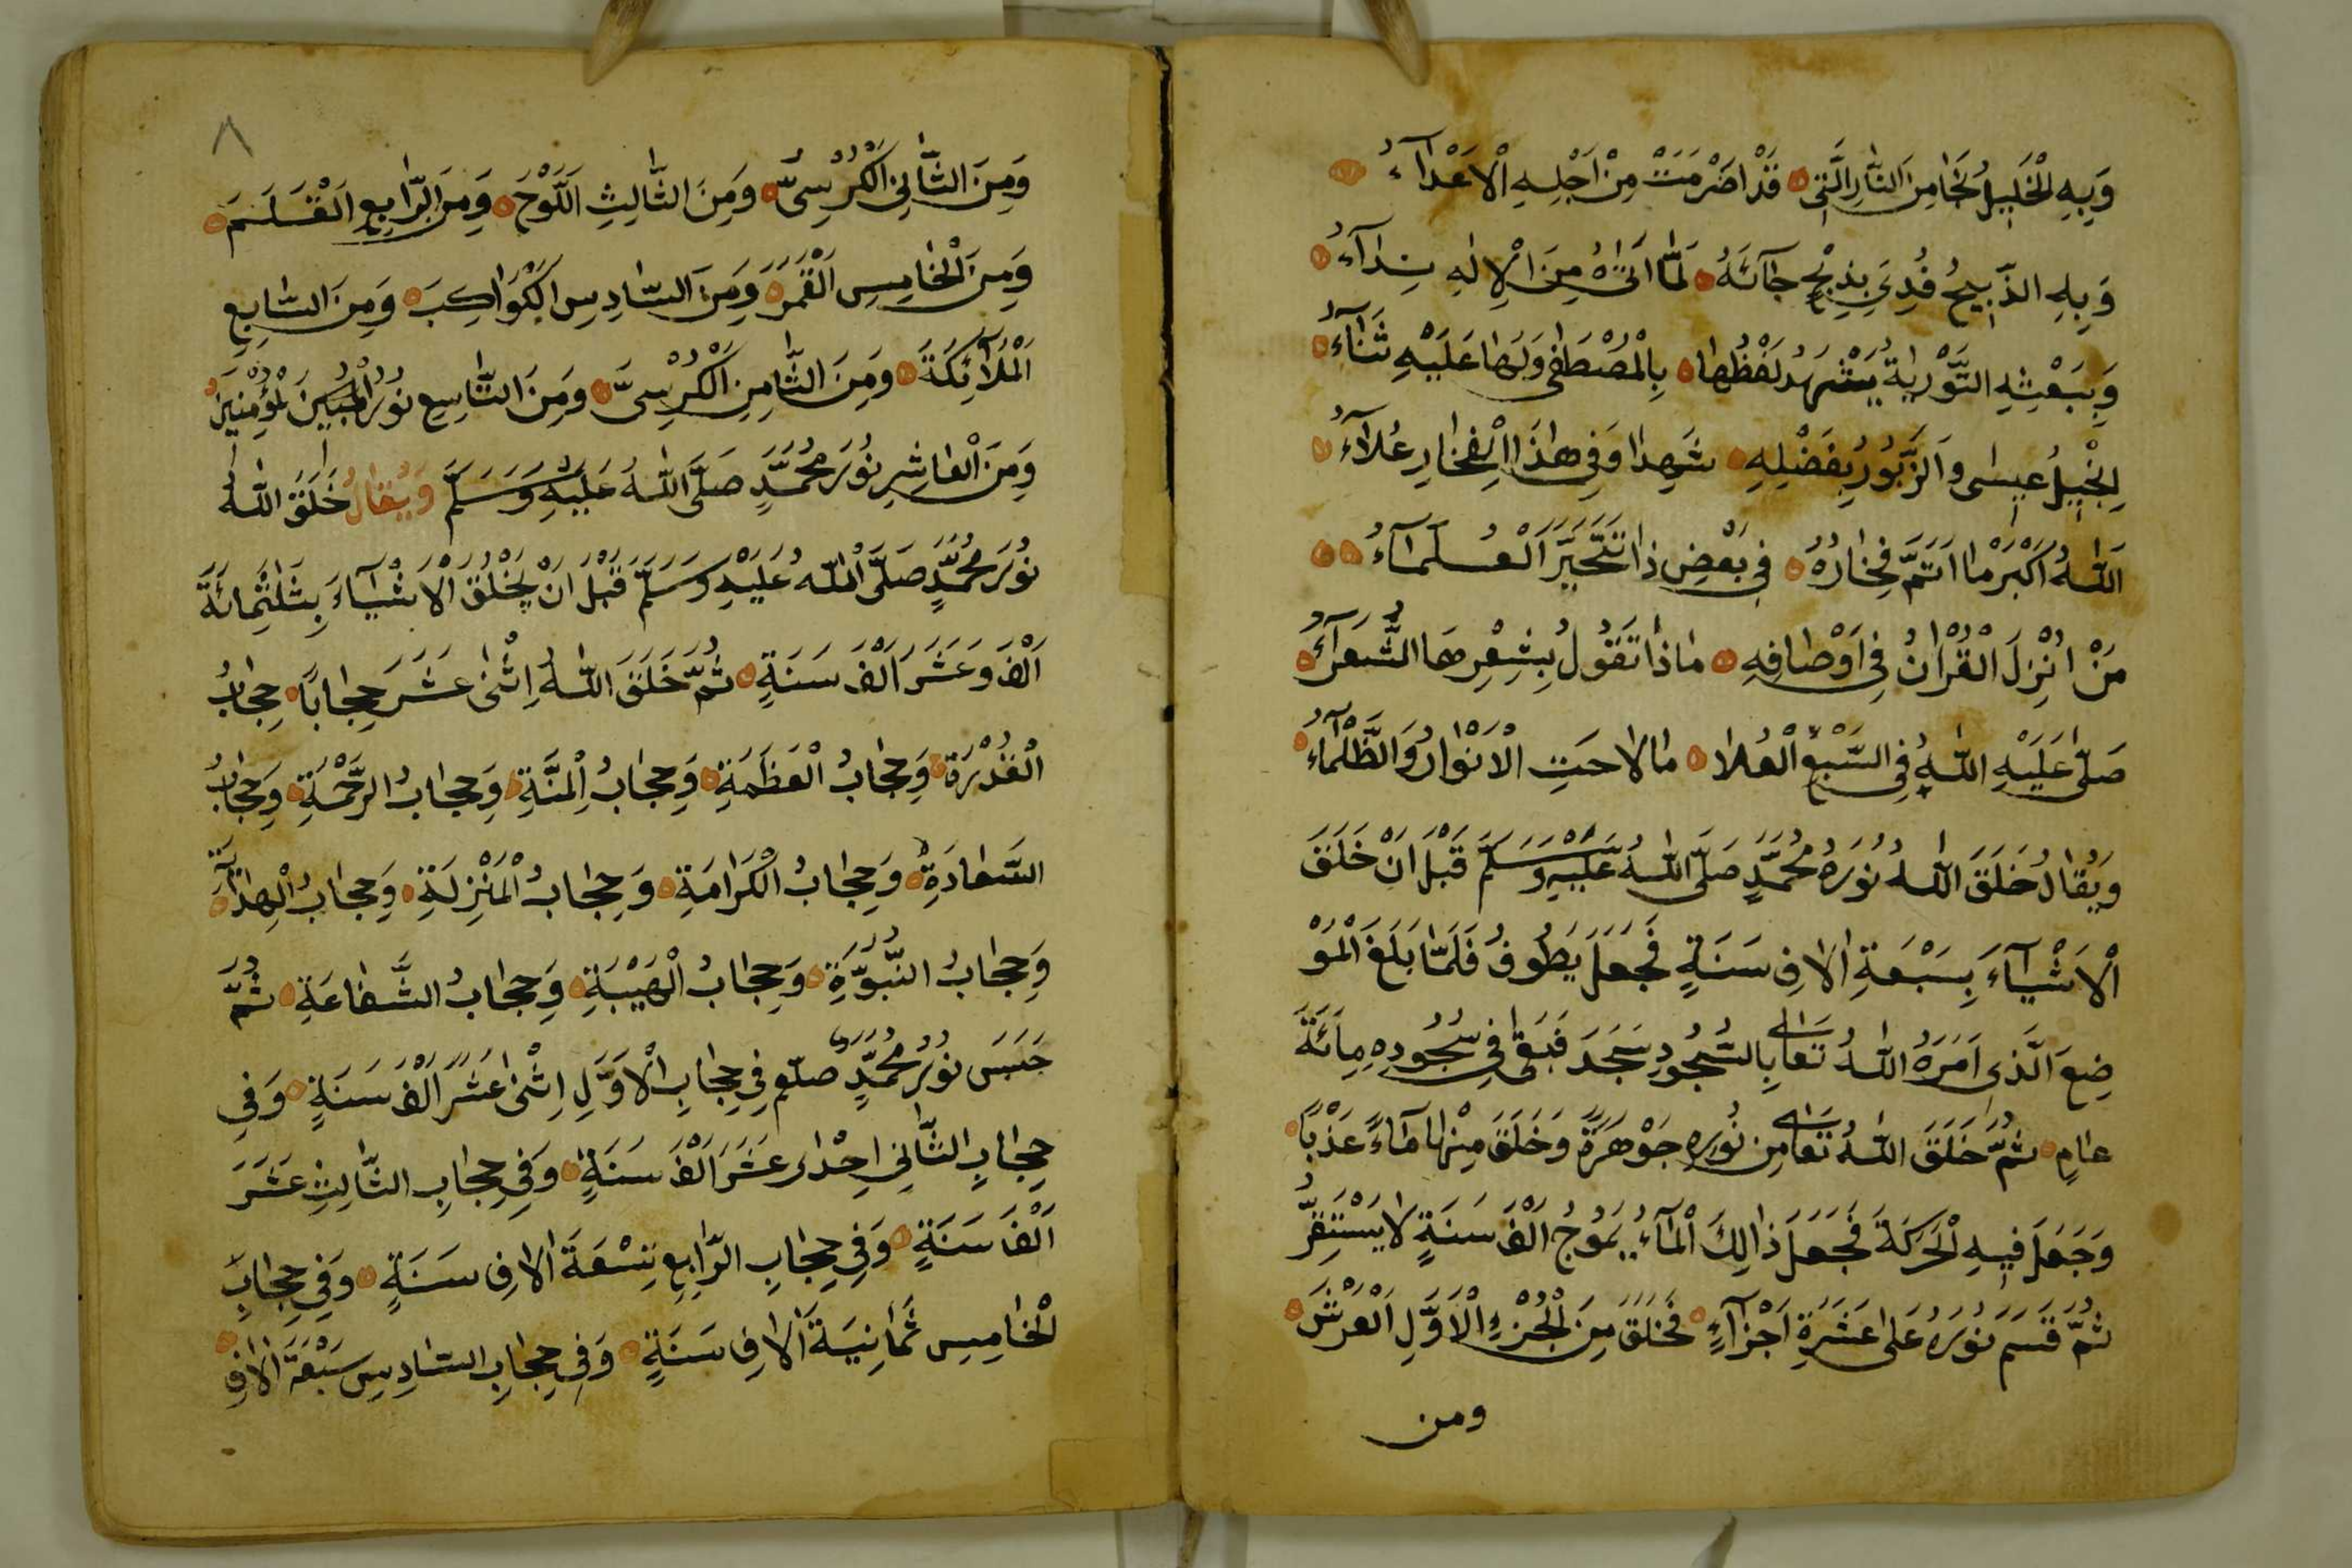 وَبِهِ الْخَلِيلُ نَجَا مِنَ النَّارِ الَّتِى قَدْ اَضْرَمَتْ مِنْ اَجْلِهِ الْاَعْدَآءُ
وَبِهِ الذَّبِيحُ فُدِىَ بِذِبْحٍ جَآئَهُ لَمَّا اَتٰىهُ مِنَ الْاِلٰهِ نِدَآءُ
وَبِبَعْثِهِ التَّوْرٰيةُ يَشْهَدُ لَفْظُهَا بِالْمُصْطَفٰى وَلَهَا عَلَيْهِ ثَنَآءُ
اِنْجِيلُ عِيسٰى وَالزَّبُورُ بِفَضْلِهِ شَهِدَا وَفِى هٰذَا الْفِخَارِ عُلَآءُ
اَللّٰهُ اَكْبَرْ مَا اَتَمَّ فِخَارُهُ فِى بَعْضِ ذَا تَتَحَيَّرَ الْعُلَمَآءُ
مَنْ اُنْزِلَ الْقُرْاٰنُ فِى اَوْصَافِهِ مَاذَا تَقُولُ بِشِعْرِهَا الشُّعَرَآءُ
صَلَّى عَلَيْهِ اللّٰهُ فِى السَّبْعِ الْعُلَا مَا لَاحَتِ الْاَنْوَارُ وَالظَّلْمَآءُ
وَيُقَالُ خَلَقَ اللّٰهُ نُورَهُ مُحَمَّدٍ صَلَّى اللّٰهُ عَلَيْهِ وَسَلَّمَ قَبْلَ اَنْ خَلَقَ
الْاَشْيَآءَ بِسَبْعَةِ اٰلَافِ سَنَةٍ فَجَعَلَ يَطُوفُ فَلَمَّا بَلَغَ الْمَوْ
ضِعَ الَّذِى اَمَرَهُ اللّٰهُ تَعَالٰى بِالسُّجُودِ سَجَدَ فَبَقٰى فِى سُجُودِهِ مِاَئَةَ
عَامٍ ثُمَّ خَلَقَ اللّٰهُ تَعَالٰى مِنْ نُورِهِ جَوْهَرَةً وَخَلَقَ مِنْهَا مَآءً عَذْبًا
وَجَعَلَ فِيهِ الْحَرَكَةَ فَجَعَلَ ذَالِكَ الْمَآءُ يَمُوجُ اَلْفَ سَنَةٍ لَا يَسْتَقِرُّ
ثُمَّ قَسَمَ نُورَهُ عَلٰى عَشَرَةِ اَجْزَآءٍ فَخَلَقَ مِنَ الْجُزْءِ الْاَوَّلِ الْعَرْشَ
ومن
٨
وَمِنَ الثَّانِى الْكُرْسِىَّ وَمِنَ الثَّالِثِ اللَّوْحَ وَمِنَ الرَّابِعِ الْقَلَمَ
وَمِنَ الْخَامِسِ الْقَمَرَ وَمِنَ السَّادِسِ الْكَوَاكِبَ وَمِنَ السَّابِعِ
الْمَلَآئِكَةَ وَمِنَ الثَّامِنِ الْكُرْسِىَّ وَمِنَ التَّاسِعِ نُورُ الْمُؤْمِنِينَ
وَمِنَ الْعَاشِرِ نُورَ مُحَمَّدٍ صَلَّى اللّٰهُ عَلَيْهِ وَسَلَّمَ وَيُقَالُ خَلَقَ اللّٰهُ
نُورَ مُحَمَّدٍ صَلَّى اللّٰهُ عَلَيْهِ وَسَلَّمَ قَبْلَ اَنْ يَخْلُقَ الْاَشْيَآءَ بِثَلٰثِمِائَةَ
اَلْفَ وَعَشَرَ اَلْفَ سَنَةٍ ثُمَّ خَلَقَ اللّٰهُ اِثْنٰى عَشَرَ حِجَابًا حِجَابُ
الْقُدْرَةِ وَحِجَابُ الْعَظَمَةِ وَحِجَابُ الْمِنَّةِ وَحِجَابُ الرَّحْمَةِ وَحِجَابُ
السَّعَادَةِ وَحِجَابُ الْكَرَامَةِ وَحِجَابُ الْمَنْزِلَةِ وَحِجَابُ الْهِدَايَةِ
وَحِجَابُ النُّبُوَّةِ وَحِجَابُ الْهَيْبَةِ وَحِجَابُ الشَّفَاعَةِ ثُمَّ
حَبَسَ نُورُ مُحَمَّدٍ صلّم فِى حِجَابِ الْاَوَّلِ اِثْنٰى عَشَرَ اَلْفَ سَنَةٍ وَفِى
حِجَابِ الثَّانِى اِحْدَاى عَشَرَ اَلْفَ سَنَةٍ وَفِى حِجَابِ الثَّالِثِ عَشَرَ
اَلْفَ سَنَةٍ وَفِى حِجَابِ الرَّابِعِ تِسْعَةَ اٰلَافِ سَنَةٍ وَفِى حِجَابِ
الْخَامِسِ ثَمَانِيَةَ اٰلَافِ سَنَةٍ وَفِى حِجَابِ السَّادِسِ سَبْعَةَ اٰلَافِ